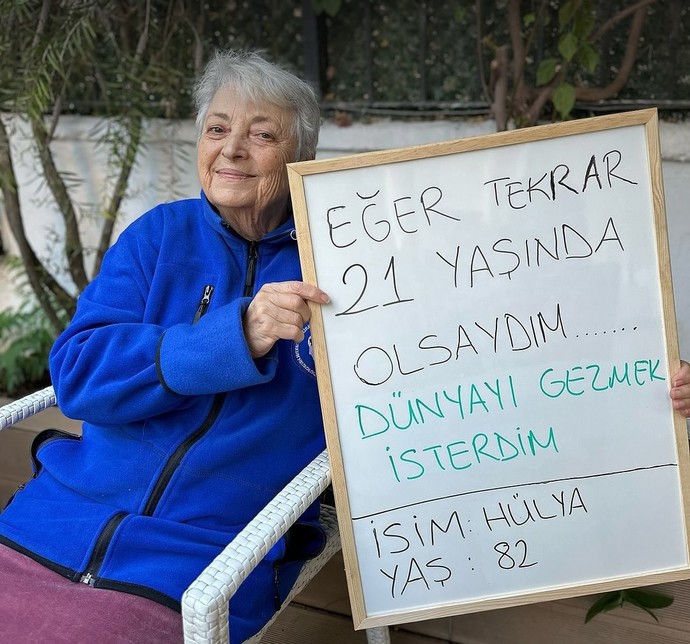 EĞER TEKRAR
21 YAŞINDA
OLSAYDIM.......
DÜNYAYI GEZMEK
İSTERDİM
İSİM: HÜLYA
YAŞ : 82